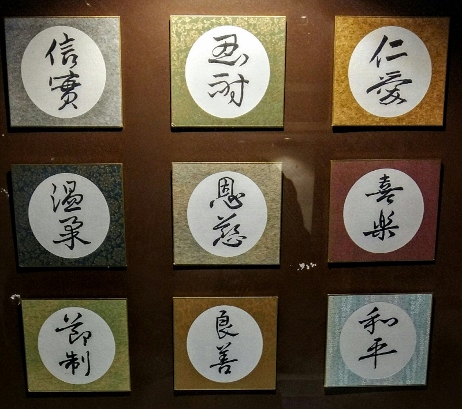 信實
忍耐
仁愛
溫柔
恩慈
喜樂
節制
良善
和平